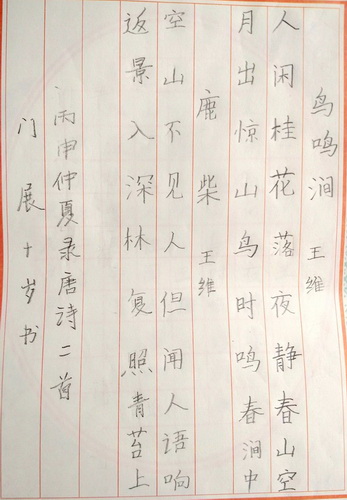 鸟鸣涧 王维
人闲桂花落夜静春山空
月出惊山鸟时鸣春涧中
鹿柴 王维
空山不见人但闻人语响
返景入深林复照青苔上
丙申仲夏录唐诗二首
门展十岁书